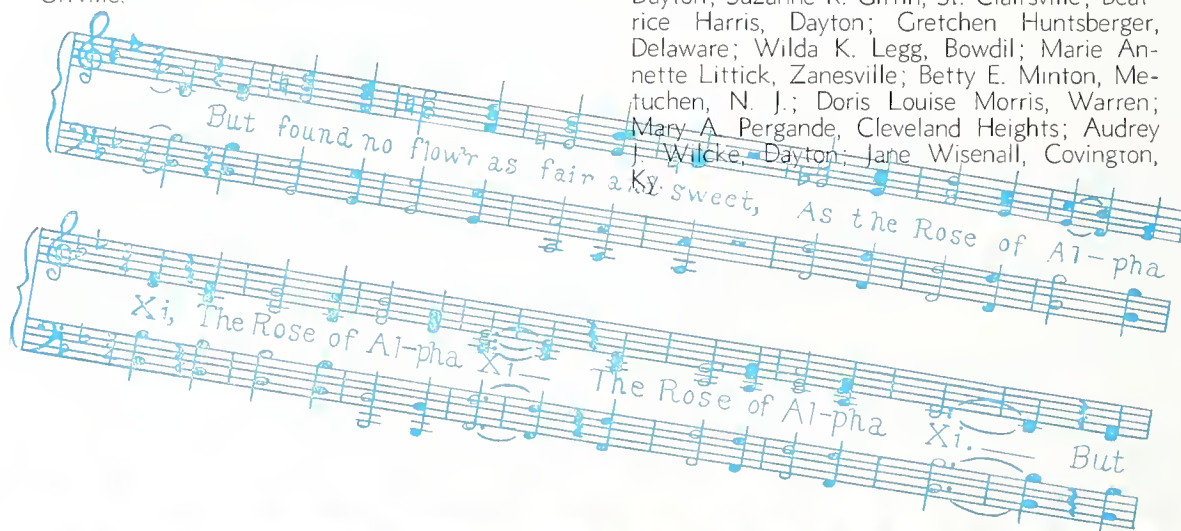 rice Harris, Dayton; Gretchen Huntsberger,
Delaware; Wilda K. Legg, Bowdil; Marie An-
nette Littick, Zanesville; Betty E. Minton, Me-
tuchen, N. J.; Doris Louise Morris, Warren;
Mary A. Pergande, Cleveland Heights; Audrey
J. Wilcke, Dayton; Jane Wisenall, Covington,
Ky.
But found no flow'r as fair and sweet, As the Rose of Al-pha
Xi, The Rose of Al-pha Xi— The Rose of Al-pha Xi.— But